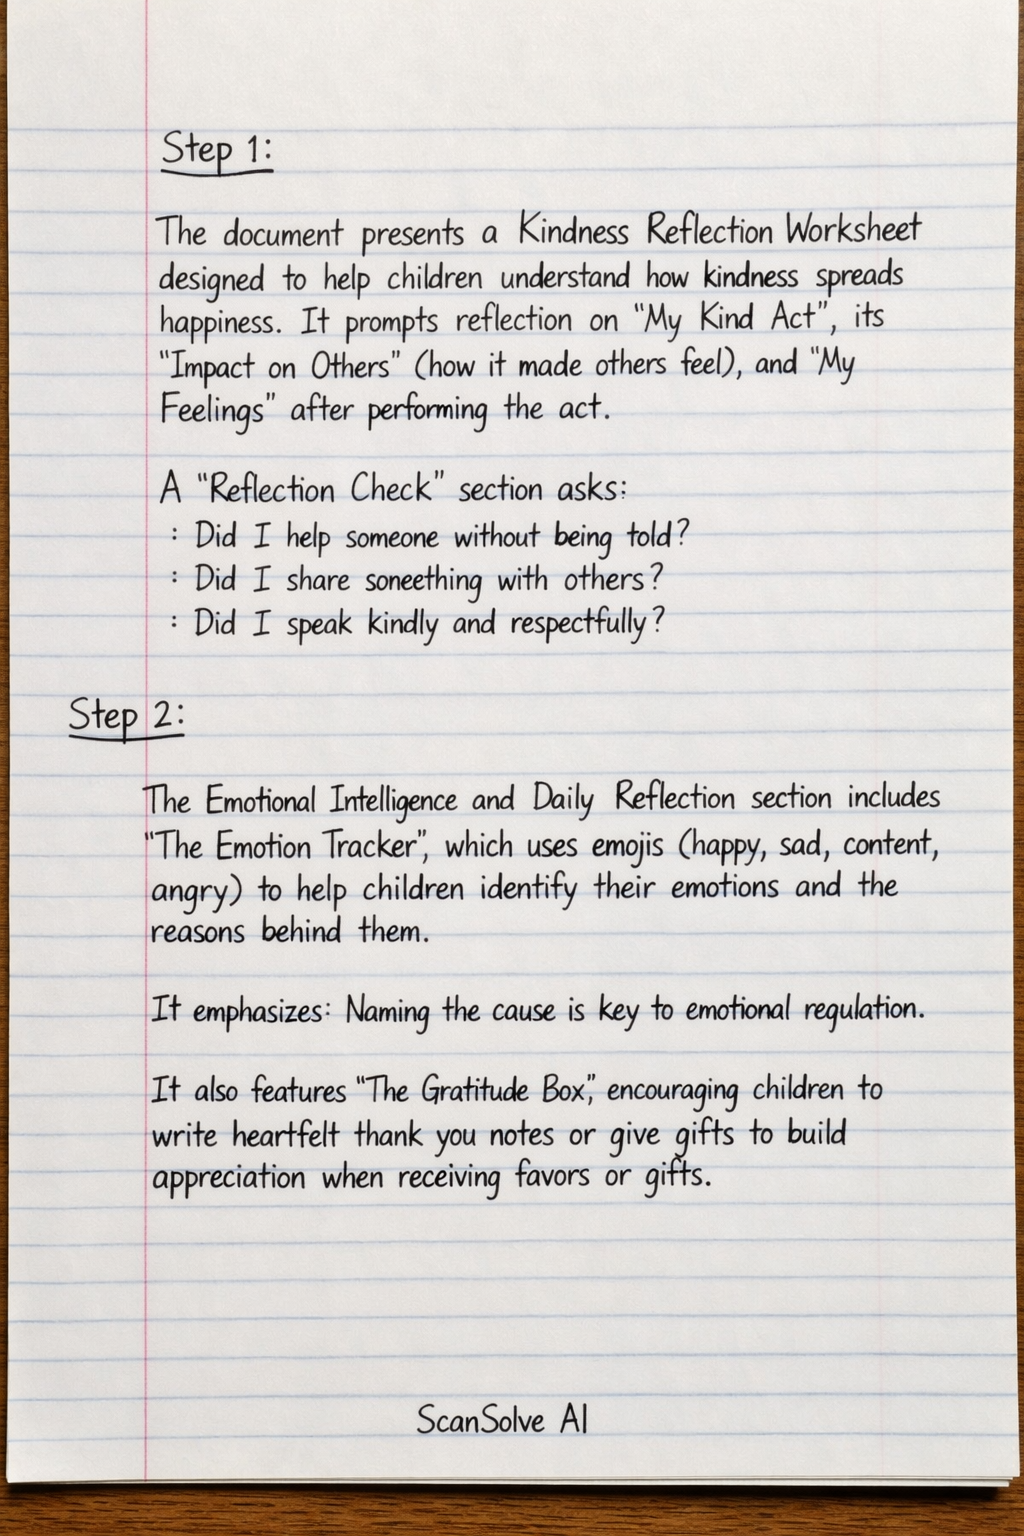 Step 1:
The document presents a Kindness Reflection Worksheet
designed to help children understand how kindness spreads
happiness. It prompts reflection on "My Kind Act", its
"Impact on Others" (how it made others feel), and "My
Feelings" after performing the act.
A "Reflection Check" section asks:
: Did I help someone without being told?
: Did I share soneething with others?
: Did I speak kindly and respectfully?
Step 2:
The Emotional Intelligence and Daily Reflection section includes
"The Emotion Tracker", which uses emojis (happy, sad, content,
angry) to help children identify their emotions and the
reasons behind them.
It emphasizes: Naming the cause is key to emotional regulation.
It also features "The Gratitude Box", encouraging children to
write heartfelt thank you notes or give gifts to build
appreciation when receiving favors or gifts.
ScanSolve AI